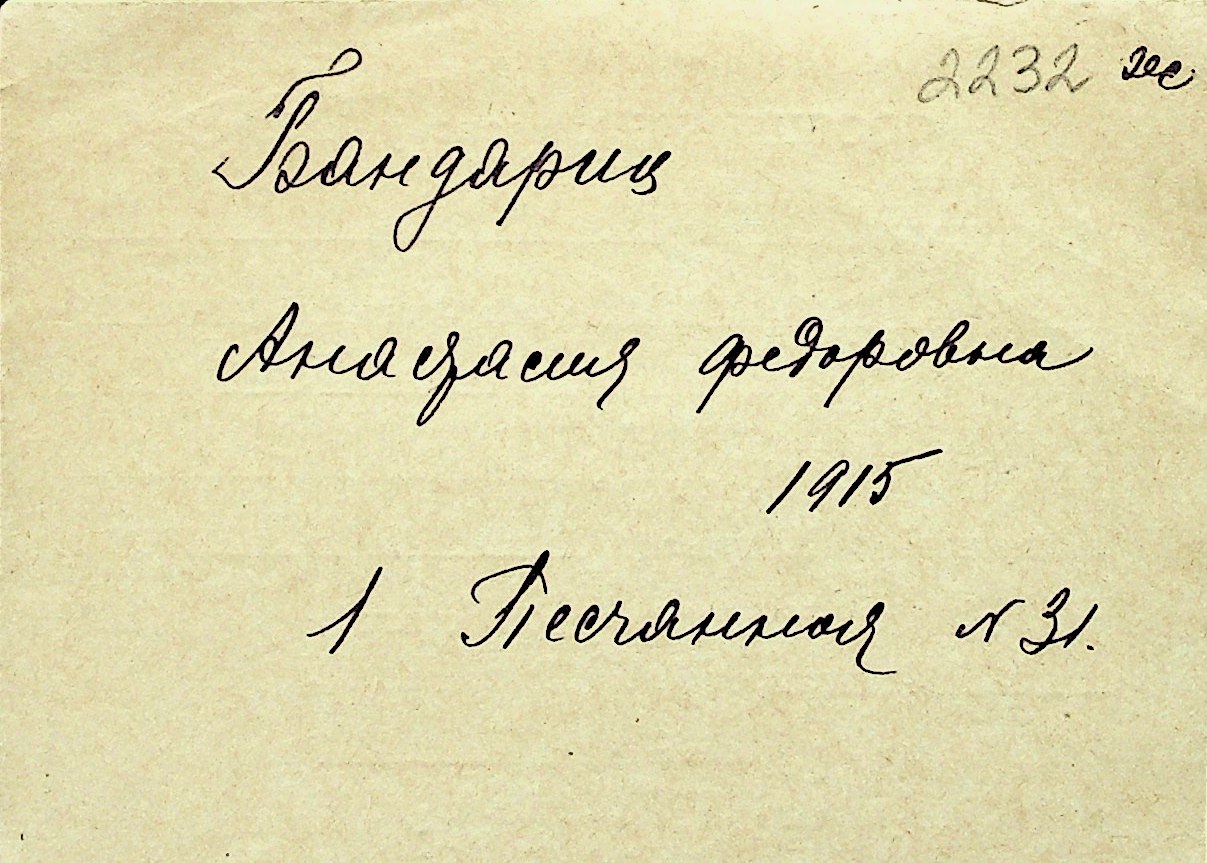 2232
Бандариц
Анастасия Федоровна
1915
1 Песчанная N 31.